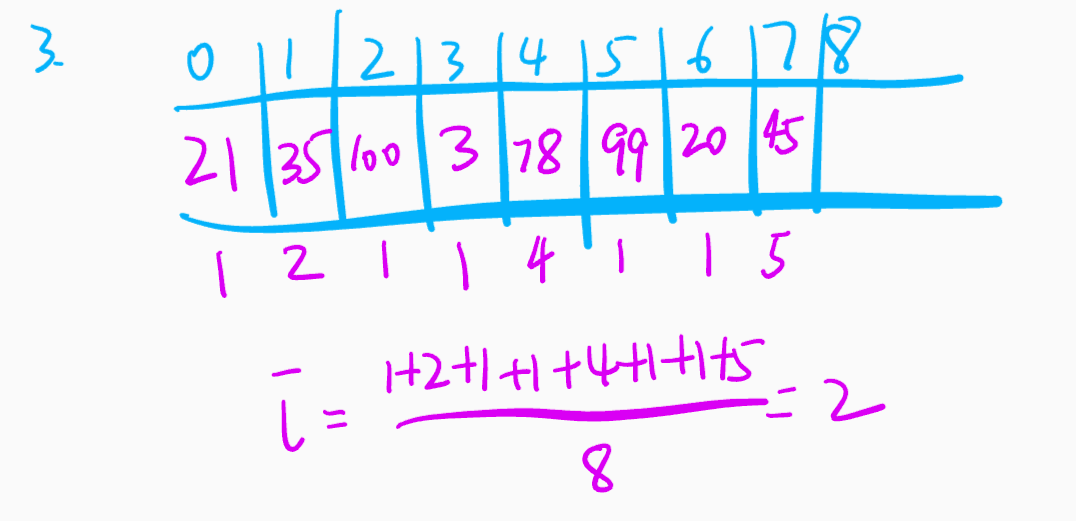 3.
0 1 2 3 4 5 6 7 8
21 35 100 3 78 99 20 45
1 2 1 1 4 1 1 5
l̄ = 1+2+1+1+4+1+1+5 = 2
8